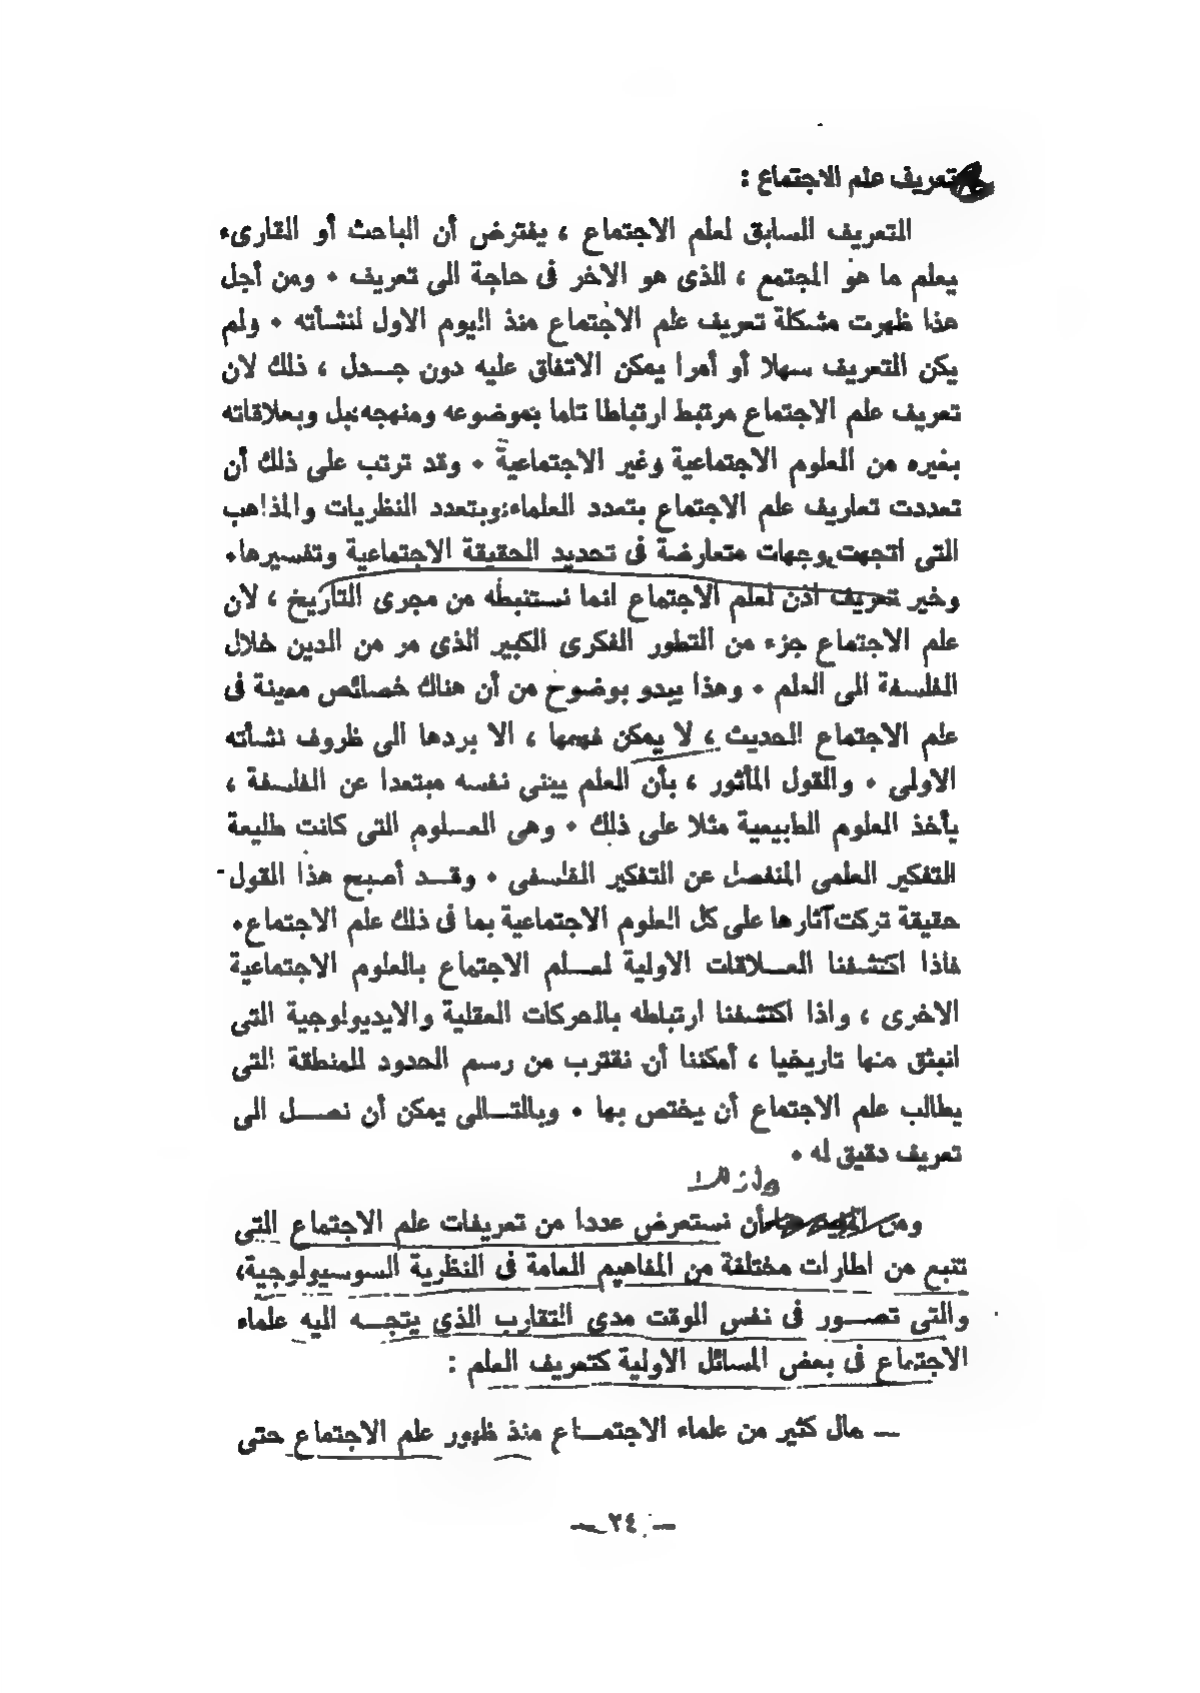 تعريف علم الاجتماع :
التعريف السابق لعلم الاجتماع ، يفترض أن الباحث أو القارىء
يعلم ما هو المجتمع ، الذى هو الاخر فى حاجة الى تعريف • ومن أجل
هذا ظهرت مشكلة تعريف علم الاجتماع منذ اليوم الاول لنشأته • ولم
يكن التعريف سهلا أو أمرا يمكن الاتفاق عليه دون جـــدل ، ذلك لان
تعريف علم الاجتماع مرتبط ارتباطا تاما بموضوعه ومنهجه بل وبعلاقاته
بغيره من العلوم الاجتماعية وغير الاجتماعية • وقد ترتب على ذلك أن
تعددت تعاريف علم الاجتماع بتعدد العلماء وبتعدد النظريات والمذاهب
التى اتجهت وجهات متعارضة فى تحديد الحقيقة الاجتماعية وتفسيرها•
وخير تعريف اذن لعلم الاجتماع انما نستنبطه من مجرى التاريخ ، لان
علم الاجتماع جزء من التطور الفكرى الكبير الذى مر من الدين خلال
الفلسفة الى العلم • وهذا يبدو بوضوح من أن هناك خصائص معينة فى
علم الاجتماع الحديث ، لا يمكن فهمها ، الا بردها الى ظروف نشأته
الاولى • والقول المأثور ، بأن العلم يبنى نفسه مبتعدا عن الفلسفة ،
يأخذ العلوم الطبيعية مثلا على ذلك • وهى العـــلوم التى كانت طليعة
التفكير العلمى المنفصل عن التفكير الفلسفى • وقـــد أصبح هذا القول
حقيقة تركت آثارها على كل العلوم الاجتماعية بما فى ذلك علم الاجتماع•
فاذا اكتشفنا العـــلاقات الاولية لعـــلم الاجتماع بالعلوم الاجتماعية
الاخرى ، واذا اكتشفنا ارتباطه بالحركات العقلية والايديولوجية التى
انبثق منها تاريخيا ، أمكننا أن نقترب من رسم الحدود للمنطقة التى
يطالب علم الاجتماع أن يختص بها • وبالتـــالى يمكن أن نصـــل الى
تعريف دقيق له •
ومن أن نستعرض عددا من تعريفات علم الاجتماع التى
تنبع من اطارات مختلفة من المفاهيم العامة فى النظرية السوسيولوجية،
والتى تصـــور فى نفس الوقت مدى التقارب الذي يتجـــه اليه علماء
الاجتماع فى بعض المسائل الاولية كتعريف العلم :
— مال كثير من علماء الاجتمـــاع منذ ظهور علم الاجتماع حتى
— ٢٤ —